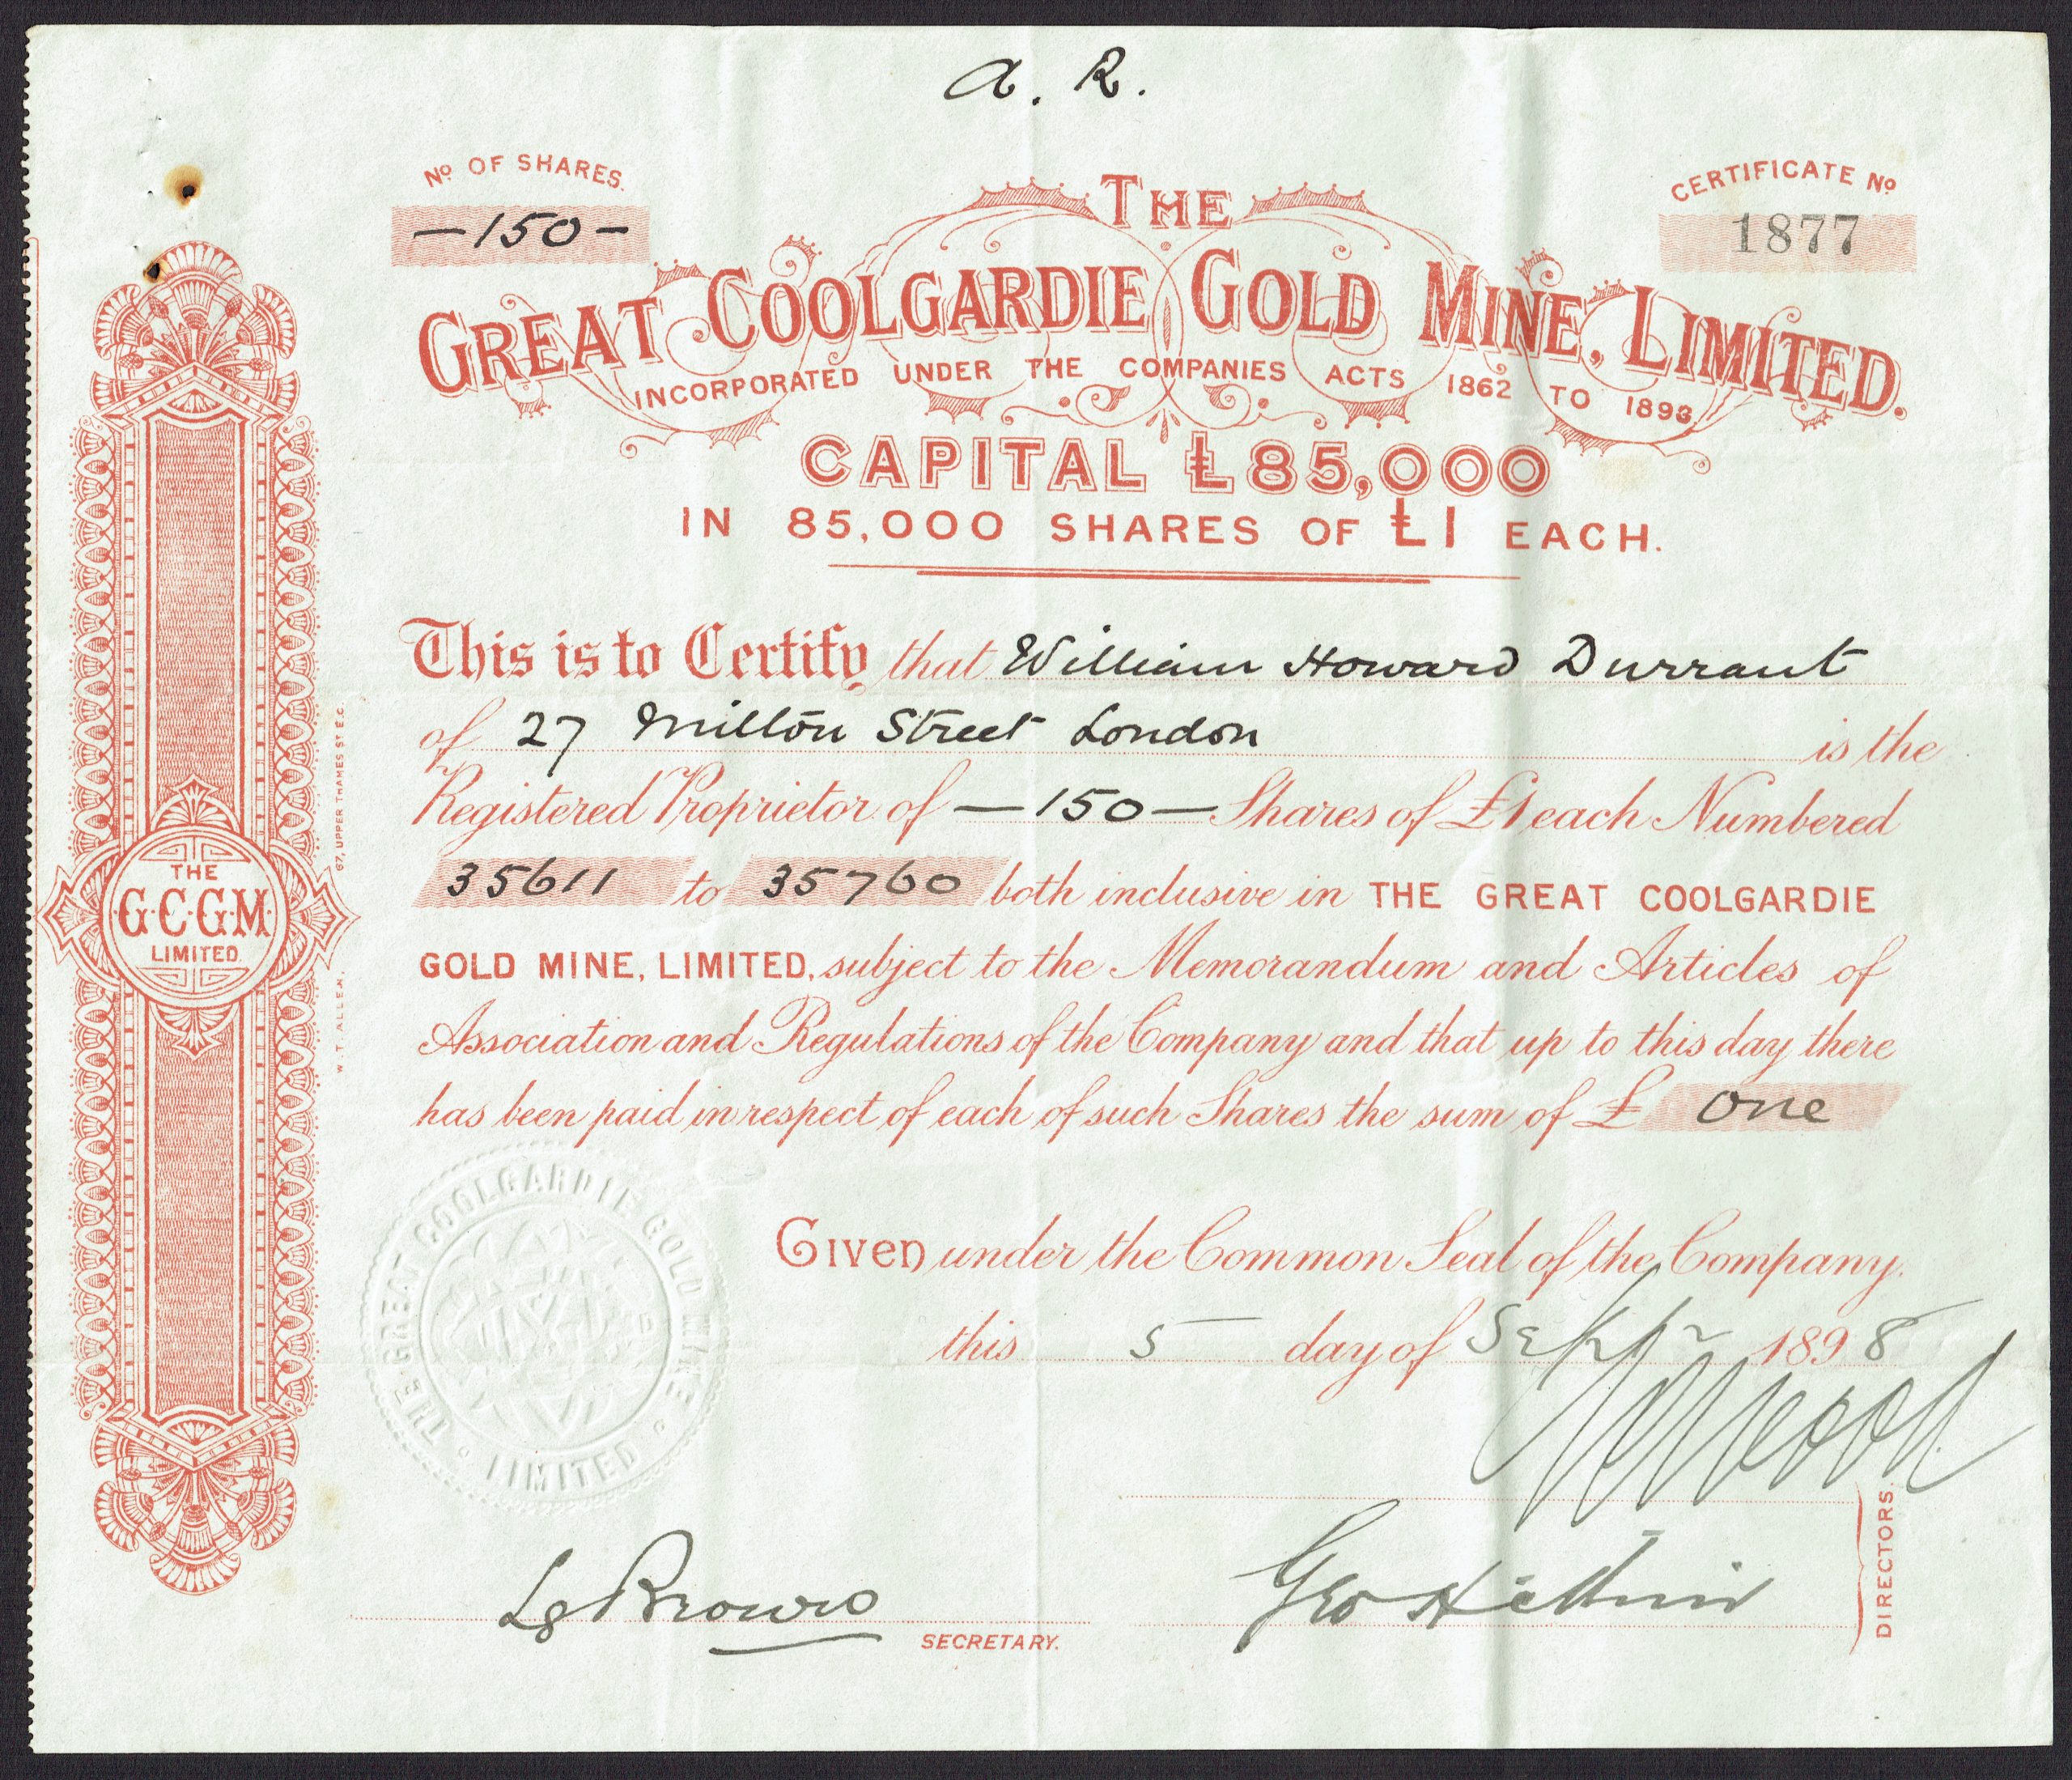 a. R.
No OF SHARES.
—150—
CERTIFICATE No
1877
THE
GREAT COOLGARDIE GOLD MINE, LIMITED.
INCORPORATED UNDER THE COMPANIES ACTS 1862 TO 1893.
CAPITAL £85,000
IN 85,000 SHARES OF £1 EACH.
This is to Certify that William Howard Durrant
of 27 Milton Street London is the
Registered Proprietor of —150— Shares of £1 each Numbered
35611 to 35760 both inclusive in THE GREAT COOLGARDIE
GOLD MINE, LIMITED, subject to the Memorandum and Articles of
Association and Regulations of the Company and that up to this day there
has been paid in respect of each of such Shares the sum of £ One
Given under the Common Seal of the Company.
this 5 day of Septr 1898
DIRECTORS.
SECRETARY.
THE
G.C.G.M.
LIMITED.
W. T. ALLEN. 67, UPPER THAMES ST E.C.
THE GREAT COOLGARDIE GOLD MINE • LIMITED •